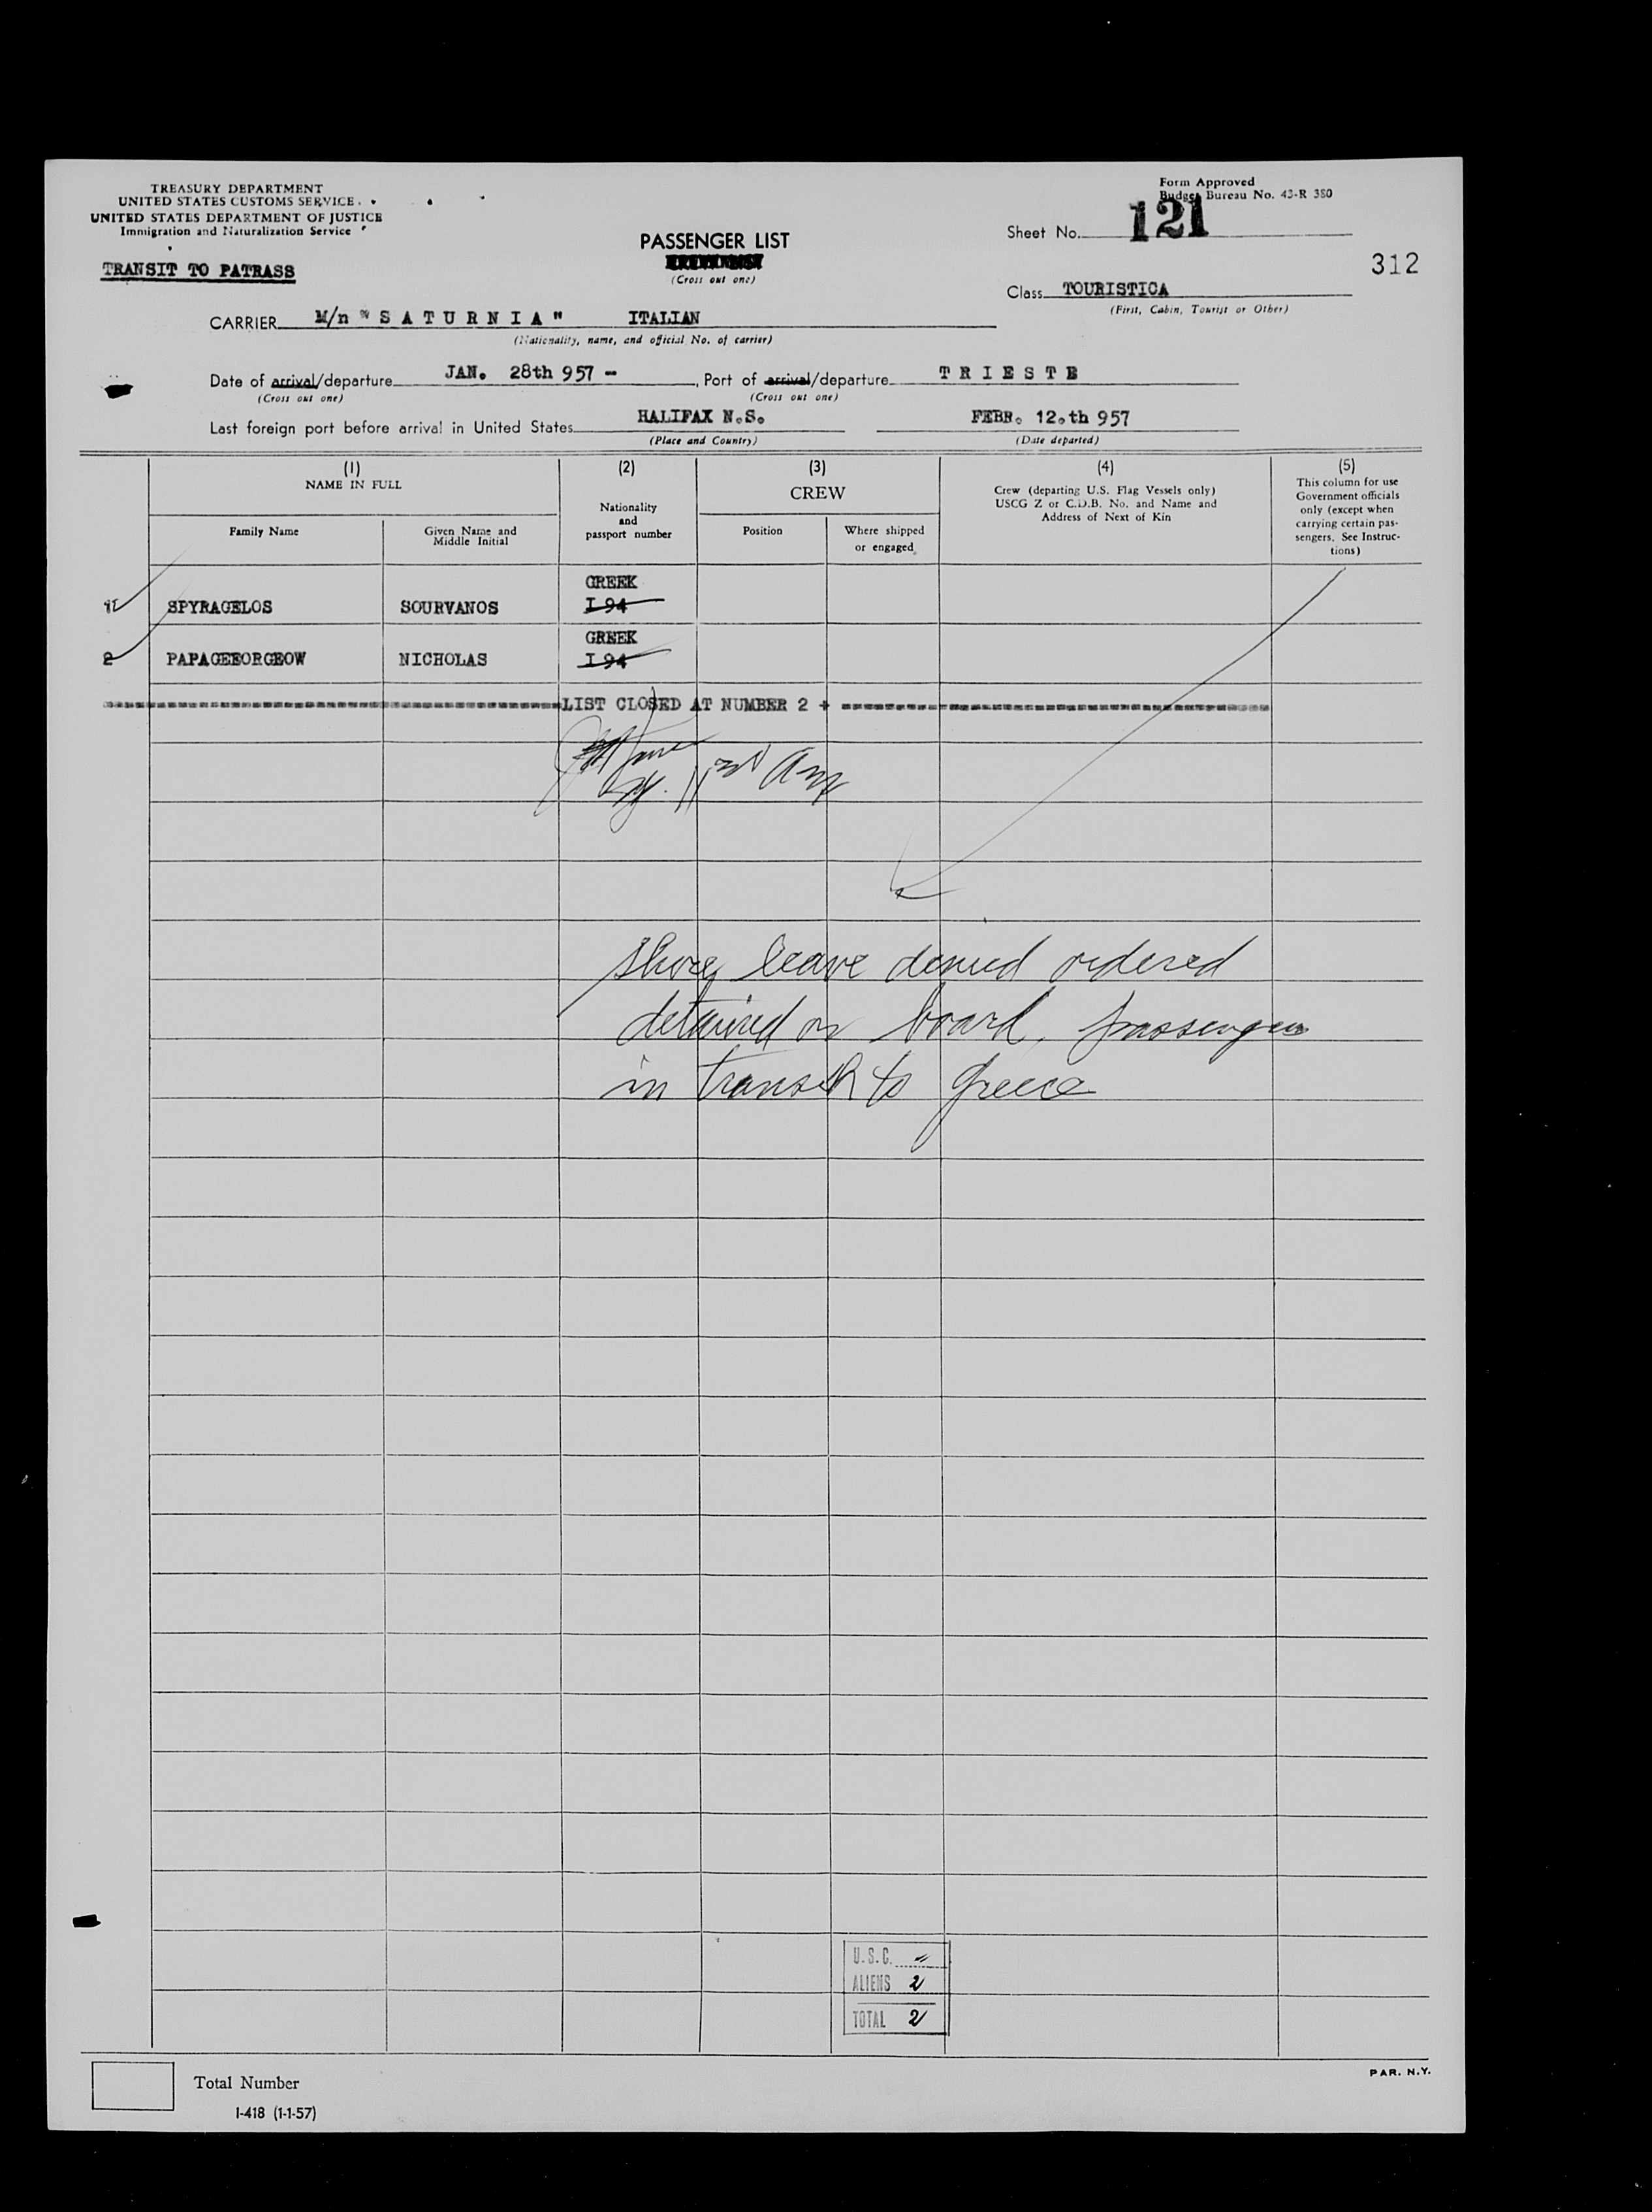 TREASURY DEPARTMENT
UNITED STATES CUSTOMS SERVICE
UNITED STATES DEPARTMENT OF JUSTICE
Immigration and Naturalization Service
TRANSIT TO PATRASS
PASSENGER LIST
(Cross out one)
Form Approved
Budget Bureau No. 43-R 380
Sheet No. 121
312
Class TOURISTICA
(First, Cabin, Tourist or Other)
CARRIER M/n "SATURNIA" ITALIAN
(Nationality, name, and official No. of carrier)
Date of arrival/departure JAN. 28th 957 - , Port of arrival/departure TRIESTE
(Cross out one) (Cross out one)
Last foreign port before arrival in United States HALIFAX N.S. FEBR. 12.th 957
(Place and Country) (Date departed)
(1) NAME IN FULL
Family Name
Given Name and Middle Initial
(2)
Nationality
and
passport number
(3)
CREW
Position
Where shipped
or engaged
(4)
Crew (departing U.S. Flag Vessels only)
USCG Z or C.D.B. No. and Name and
Address of Next of Kin
(5)
This column for use
Government officials
only (except when
carrying certain pas-
sengers, See Instruc-
tions)
GREEK
1 SPYRAGELOS SOURVANOS I-94
GREEK
2 PAPAGEEORGEOW NICHOLAS I-94
LIST CLOSED AT NUMBER 2 +
shore leave denied ordered
detained on board, passengers
in transit to Greece
U.S.C.
ALIENS 2
TOTAL 2
Total Number
I-418 (1-1-57)
PAR. N.Y.